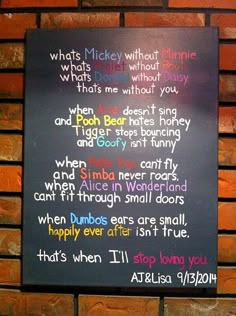 whats Mickey without Minnie
whats without
whats Donald without Daisy
thats me without you,
when doesn't sing
and Pooh Bear hates honey
Tigger stops bouncing
and Goofy isn't funny
when Peter Pan can't fly
and Simba never roars,
when Alice in Wonderland
cant fit through small doors
when Dumbo's ears are small,
happily ever after isn't true.
that's when I'll stop loving you
AJ&Lisa 9/13/2014